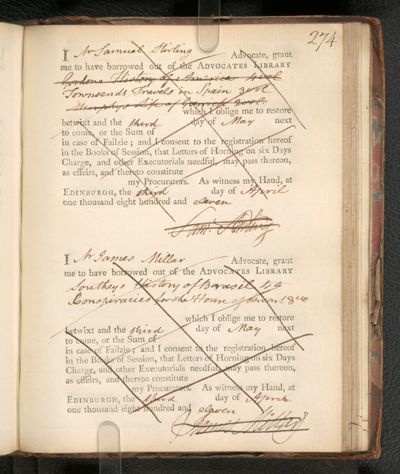 274
I Mr Samuel Stirling Advocate, grant
me to have borrowed out of the ADVOCATES LIBRARY
Gordons History of America 4 vol
Townsends Travels in Spain 3 vol
Murphys Life of Garrick 2 vol
which I oblige me to restore
betwixt and the third day of May next
to come, or the Sum of
in case of Failzie; and I consent to the registration hereof
in the Books of Session, that Letters of Horning on six Days
Charge, and other Executorials needful, may pass thereon,
as effeirs, and thereto constitute
my Procurators. As witness my Hand, at
EDINBURGH, the third day of April
one thousand eight hundred and eleven
Sam: Stirling
I Mr James Millar Advocate, grant
me to have borrowed out of the ADVOCATES LIBRARY
Southeys History of Brasil 4to
Conspiracies for the House of
which I oblige me to restore
betwixt and the third day of May next
to come, or the Sum of
in case of Failzie; and I consent to the registration hereof
in the Books of Session, that Letters of Horning on six Days
Charge, and other Executorials needful, may pass thereon,
as effeirs, and thereto constitute
my Procurators. As witness my Hand, at
EDINBURGH, the third day of April
one thousand eight hundred and eleven
James